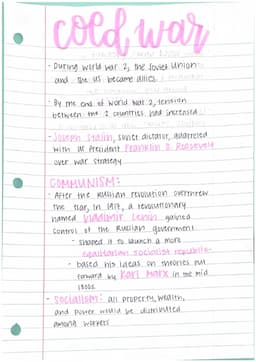 cold war
- During world war 2, the Soviet Union
and the US became allies
- By the end of World War 2, tension
between the 2 countries had increased
- Joseph Stalin, Soviet dictator, disagreed
with US President Franklin D Roosevelt
over war strategy
COMMUNISM:
- After the Russian revolution overthrew
the tsar, in 1917, a revolutionary
named Vladimir Lenin gained
control of the Russian government
- shaped it to launch a more
egalitarian socialist republic
- based his ideas on theories put
forward by Karl Marx in the mid
1800s
- Socialism: all property, wealth,
and power would be distributed
among workers